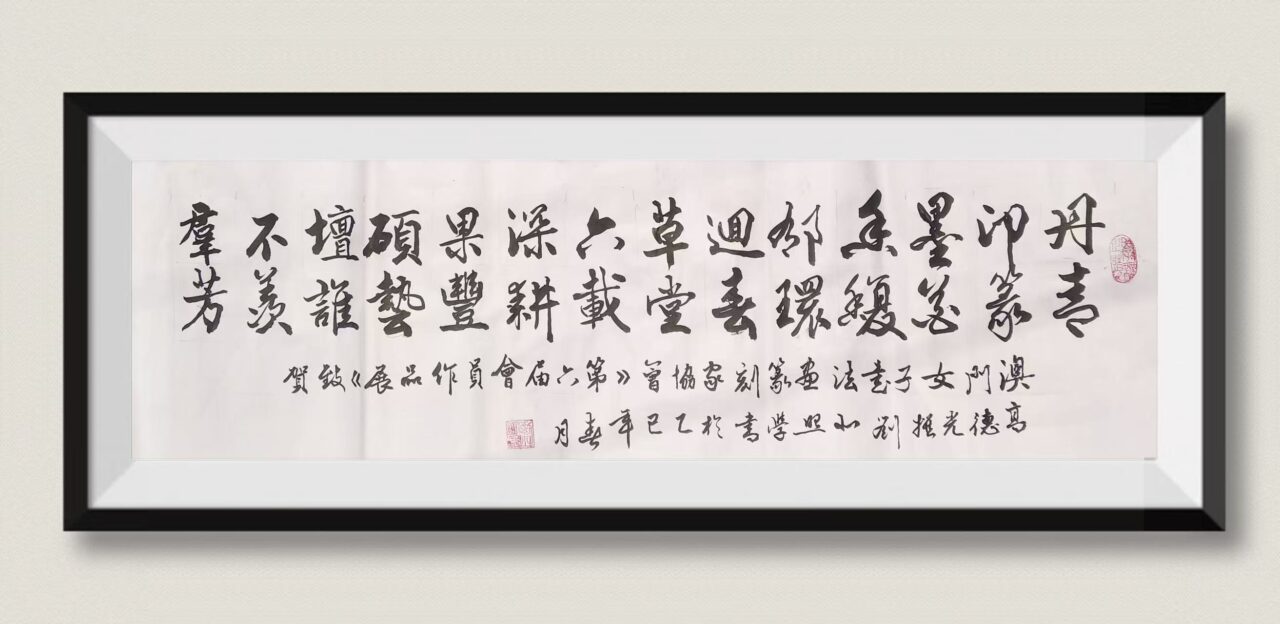 丹青
印篆
墨花
香馥
郁環
迴春
草堂
六載
深耕
果豐
碩藝
壇誰
不羨
羣芳
澳門女子書法畫篆刻家協會《第六届會員作品展》致賀
高德光撰劉照學書於乙巳年春月